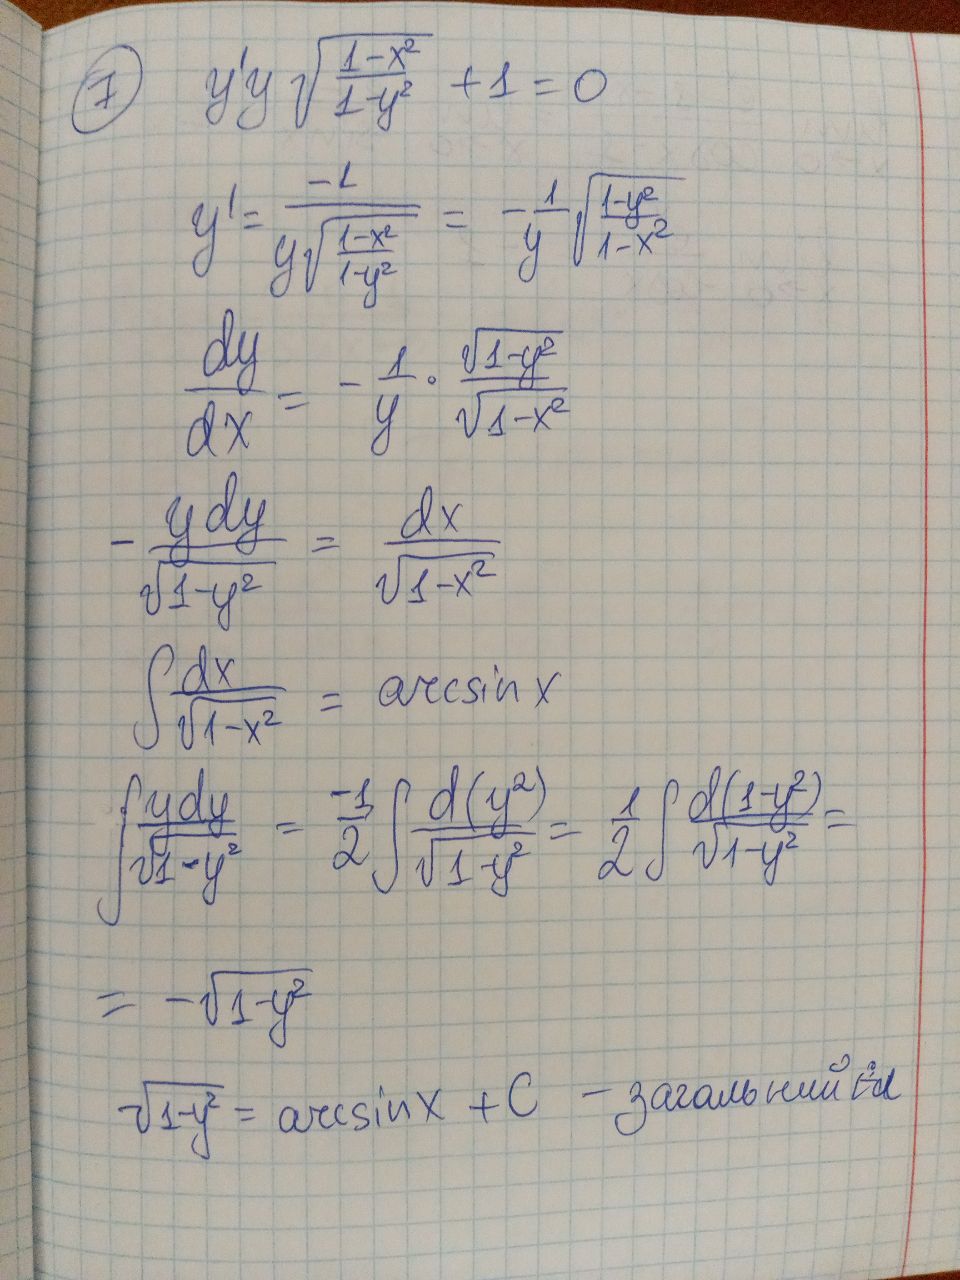 7 y'y√((1-x²)/(1-y²)) + 1 = 0
y' = -1/(y√((1-x²)/(1-y²))) = -1/y √((1-y²)/(1-x²))
dy/dx = -1/y · √(1-y²)/√(1-x²)
- y dy/√(1-y²) = dx/√(1-x²)
∫ dx/√(1-x²) = arcsin x
∫ y dy/√(1-y²) = -1/2 ∫ d(y²)/√(1-y²) = 1/2 ∫ d(1-y²)/√(1-y²) =
= -√(1-y²)
√(1-y²) = arcsin x + C - загальний